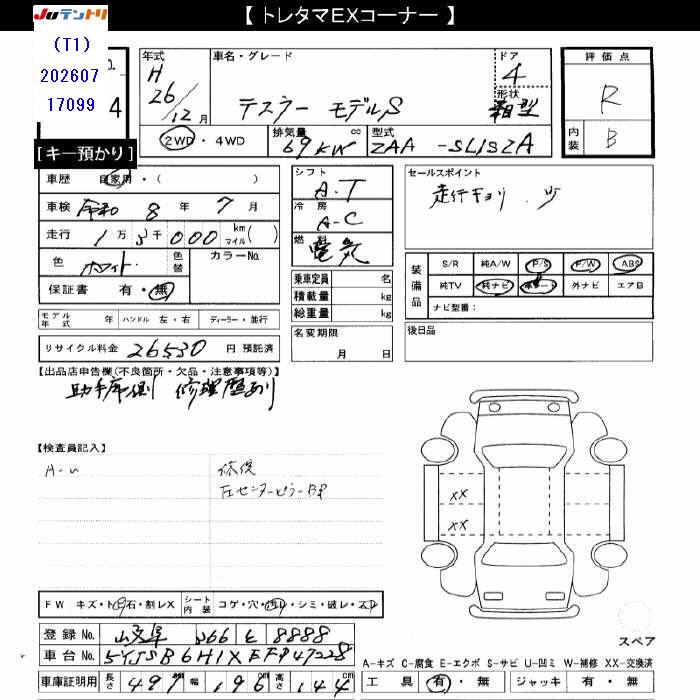 【 トレタマEXコーナー 】
JUテントリ
(T1)
202607
17099
4
【キー預かり】
年式
H
26/12月
車名・グレード
テスラー モデルS
ドア
4
形状
箱型
評価点
R
内装
B
2WD・4WD
排気量
69KW
cc
型式
ZAA-SL1S2A
車歴 自家用・( )
車検 令和 8年 7月
走行 1万3千000 km マイル( )
色 ホワイト 色替
カラーNo.
保証書 有・無
シフト
A.T
冷房
A-C
燃料
電気
乗車定員 名
積載量 kg
総重量 kg
セールスポイント
走行キョリ
装備品
S/R 純A/W P/S P/W ABS
純TV 純ナビ 本シート 外ナビ エアB
ナビ型番:
モデル年式 年 ハンドル 左・右 ディーラー・並行
リサイクル料金 26530 円 預託済
名変期限
月 日
後日品
【出品店申告欄(不良箇所・欠品・注意事項等)】
助手席側 修理歴あり
【検査員記入】
A-U
修復
左センターピラーBP
XX
XX
FW キズ・ト石・割レX
シート内装 コゲ・穴・汚レ・シミ・破レ・スレ
登録No. 岐阜 366 8888
車台No. 5YJSB6H1XEFP47228
車庫証明用 長さ 497 幅 196 cm 高さ 144 cm
スペア
A-キズ C-腐食 E-エクボ S-サビ U-凹ミ W-補修 XX-交換済
工具 有・無 ジャッキ 有・無